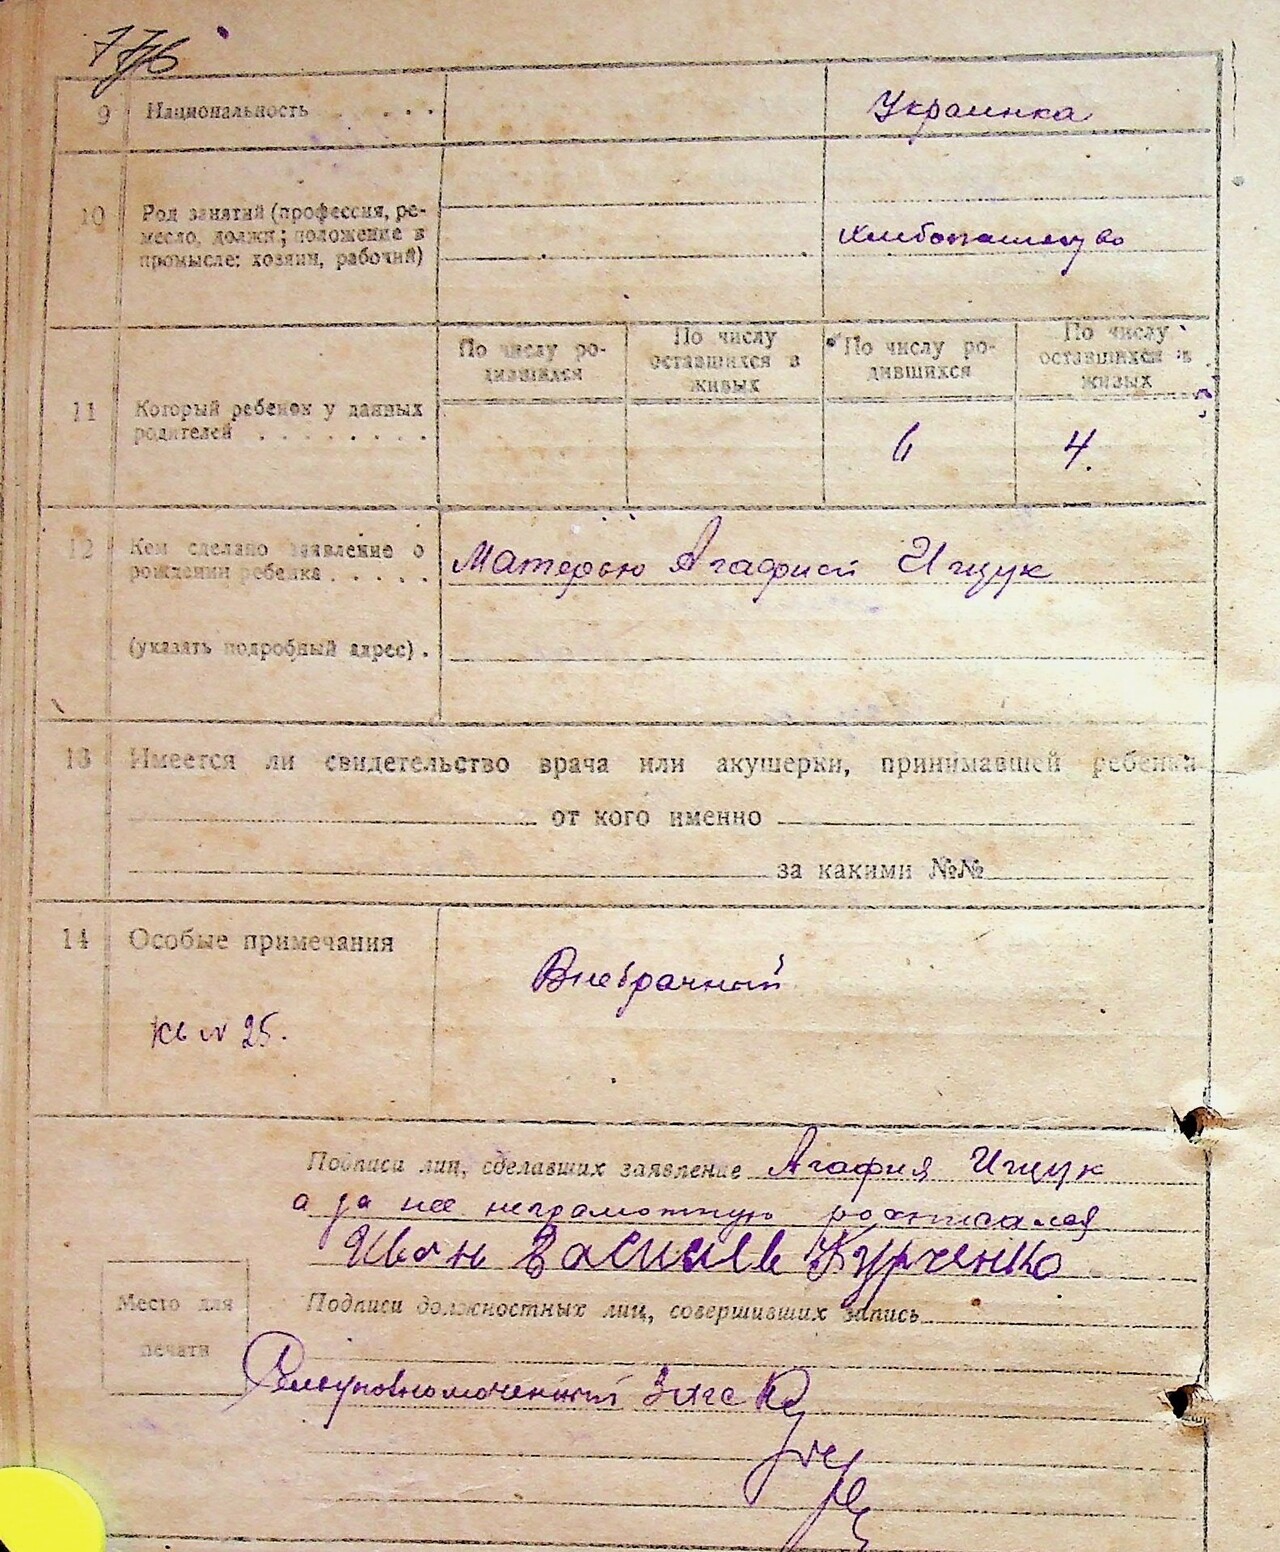 776
9 Национальность . . . . . Украинка
10 Род занятий (профессия, ре-
месло, должн.; положение в
промысле: хозяин, рабочий)
хлебопашество
По числу ро-
дившихся
По числу
оставшихся в
живых
По числу ро-
дившихся
По числу
оставшихся в
живых
11 Который ребенок у данных
родителей . . . . . . . .
6 4.
12 Кем сделано заявление о
рождении ребенка . . . . .
Матерью Агафией Ищук
(указать подробный адрес) .
13 Имеется ли свидетельство врача или акушерки, принимавшей ребенка
от кого именно
за какими №№
14 Особые примечания
Внебрачный
№ 25.
Подписи лиц, сделавших заявление Агафия Ищук
а за нее неграмотную росписался
Иван Васильев Курченко
Место для
печати
Подписи должностных лиц, совершивших запись
Загс